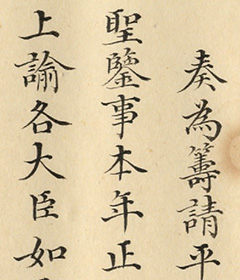 奏為籌請平
聖鑒事本年正
上諭各大臣如